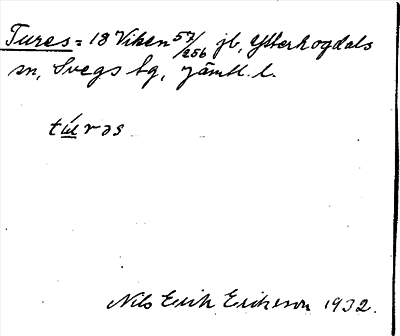 Tures = 18 Viken 57/256 jb, Ytterhogdals
sn, Svegs tg, Jämtl. l.
tú̲rəs
Nils Erik Erikson 1932.